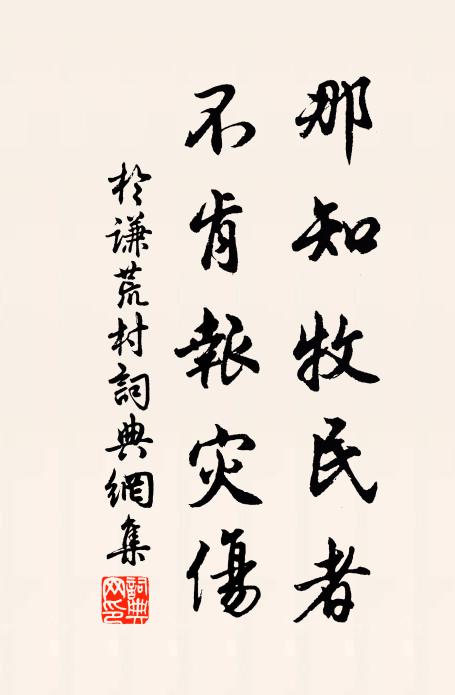 那知牧民者
不肯報灾傷
於謙荒村詞典網集
詞典
网印